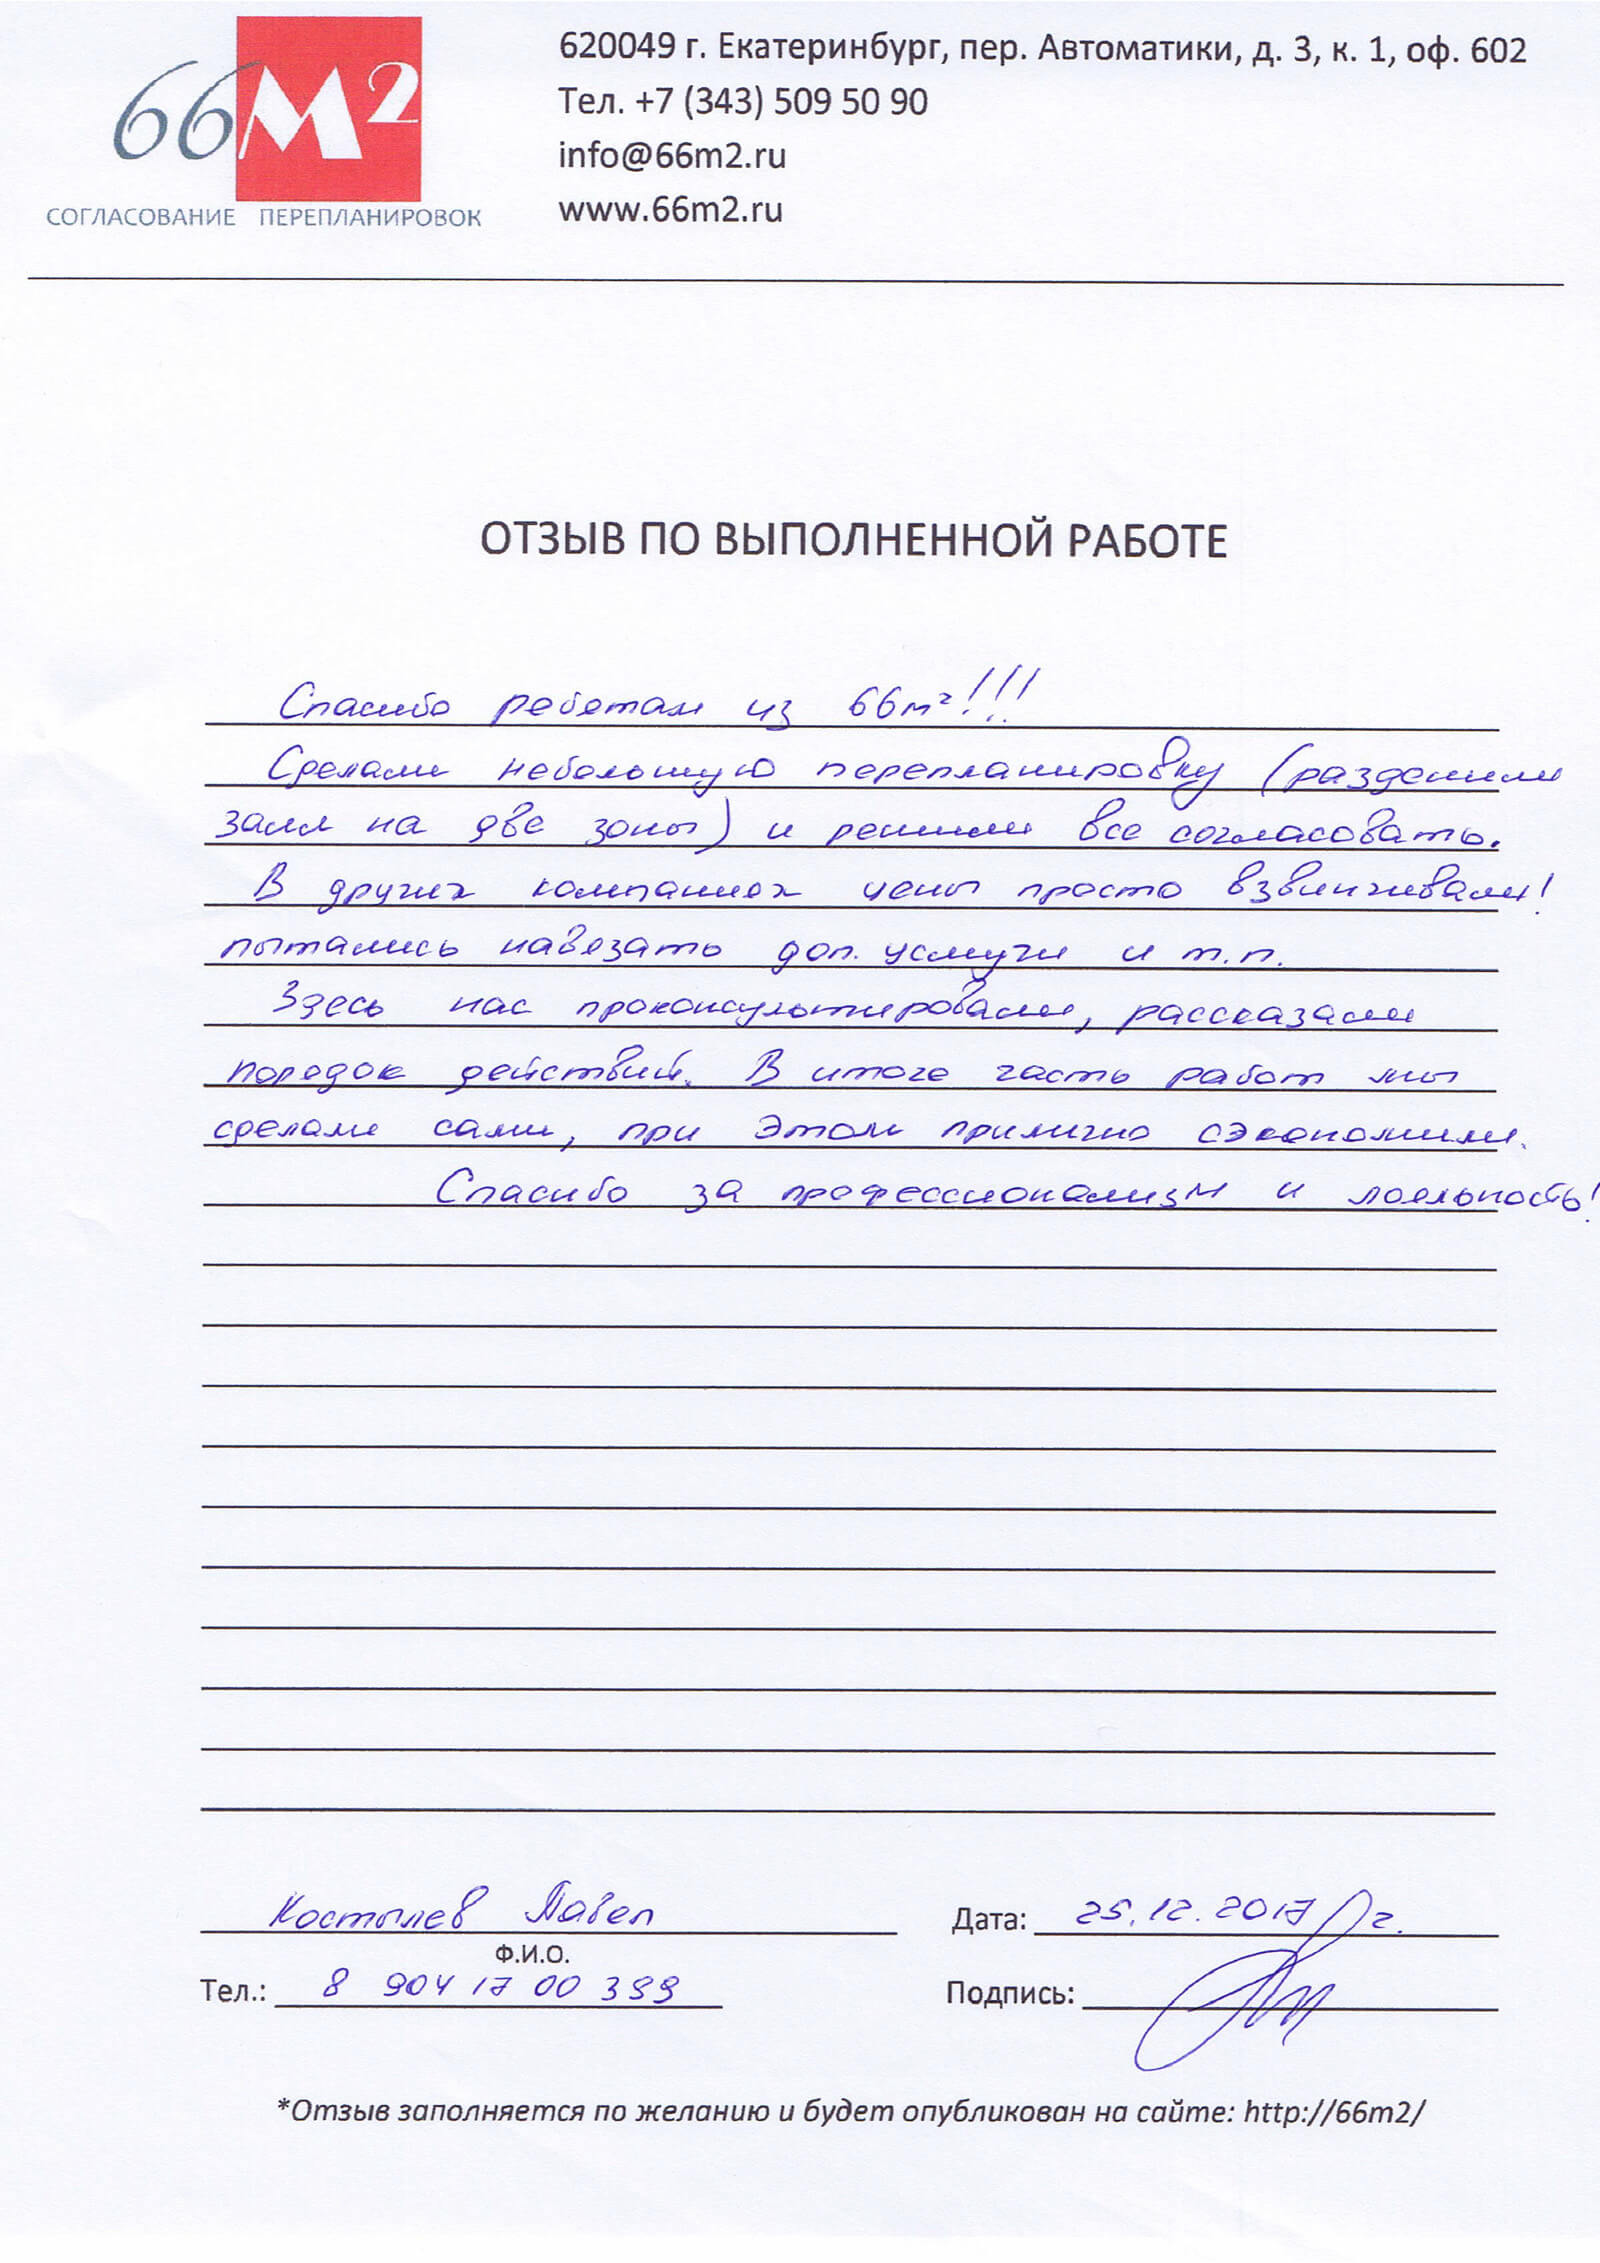 66м2
СОГЛАСОВАНИЕ ПЕРЕПЛАНИРОВОК
620049 г. Екатеринбург, пер. Автоматики, д. 3, к. 1, оф. 602
Тел. +7 (343) 509 50 90
info@66m2.ru
www.66m2.ru
ОТЗЫВ ПО ВЫПОЛНЕННОЙ РАБОТЕ
Спасибо ребятам из 66м²!!!
Сделали небольшую перепланировку (разделили
залл на две зоны) и решили все согласовать.
В других компаниях цены просто взвинчивали!
пытались навязать доп. услуги и т.п.
Здесь нас проконсультировали, рассказали
порядок действий. В итоге часть работ мы
сделали сами, при этом прилично сэкономили.
Спасибо за профессионализм и лояльность!
Костылев Павел
Дата: 25.12.2017 г.
Ф.И.О.
Тел.: 8 904 17 00 399
Подпись:
*Отзыв заполняется по желанию и будет опубликован на сайте: http://66m2/